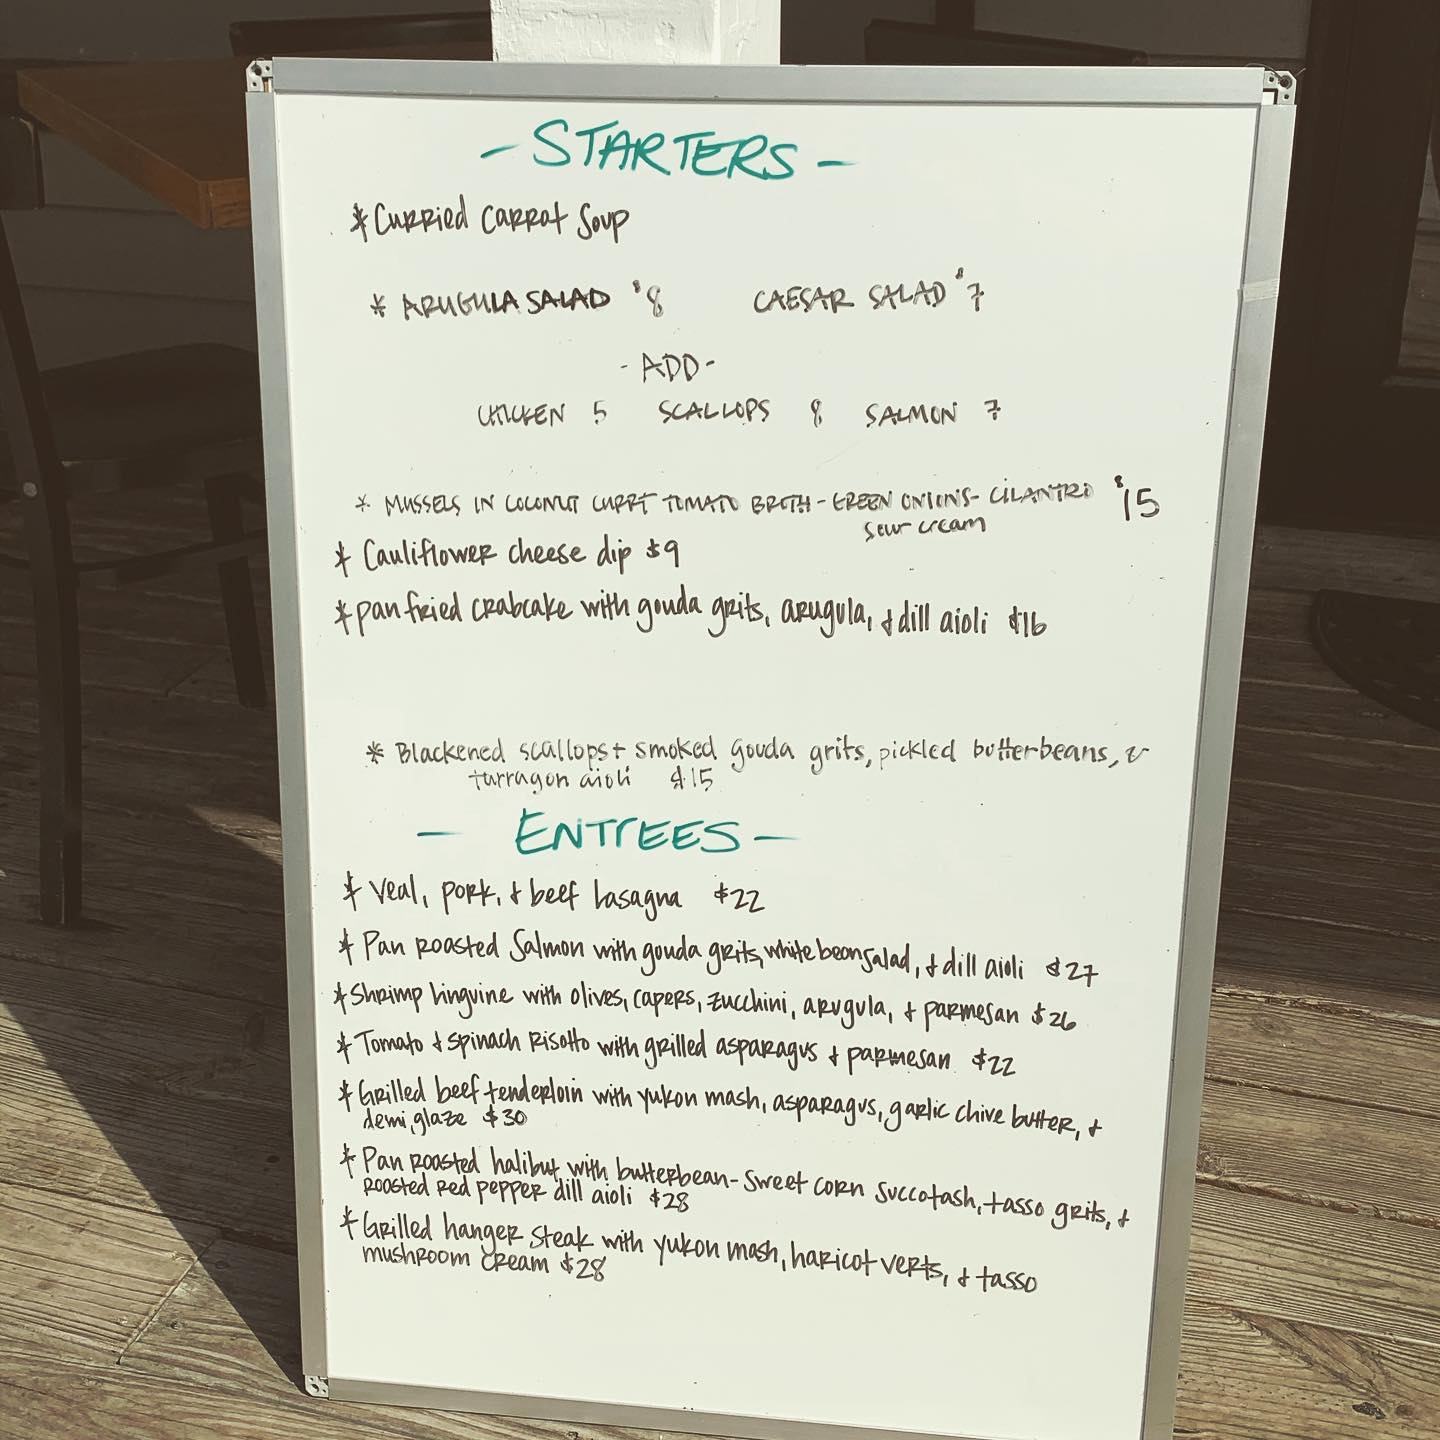 - STARTERS -
* Curried Carrot Soup
* ARUGULA SALAD $8 CAESAR SALAD $7
- ADD -
CHICKEN 5 SCALLOPS 8 SALMON 7
* MUSSELS IN COCONUT CURRY TOMATO BROTH - GREEN ONIONS - CILANTRO $15
sour cream
* Cauliflower cheese dip $9
* pan fried crabcake with gouda grits, arugula, & dill aioli $16
* Blackened scallops + smoked gouda grits, pickled butterbeans, &
tarragon aioli $15
- ENTREES -
* Veal, pork, & beef lasagna $22
* Pan roasted Salmon with gouda grits, white bean salad, & dill aioli $27
* Shrimp linguine with olives, capers, zucchini, arugula, & parmesan $26
* Tomato & spinach Risotto with grilled asparagus & parmesan $22
* Grilled beef tenderloin with yukon mash, asparagus, garlic chive butter, &
demi glaze $30
* Pan roasted halibut with butterbean-sweet corn succotash, tasso grits, &
roasted red pepper dill aioli $28
* Grilled hanger steak with yukon mash, haricot verts, & tasso
mushroom cream $28